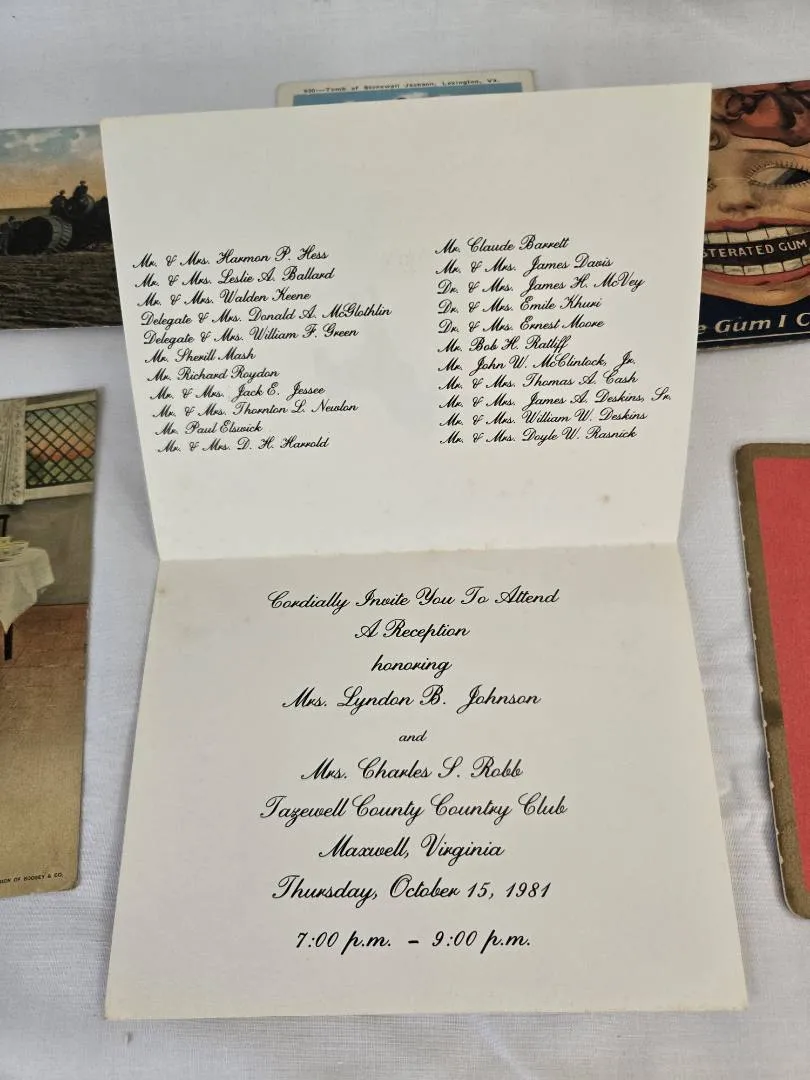 930:—Tomb of Stonewall Jackson, Lexington, Va.
Mr. & Mrs. Harmon P. Hess
Mr. & Mrs. Leslie A. Ballard
Mr. & Mrs. Walden Keene
Delegate & Mrs. Donald A. McGlothlin
Delegate & Mrs. William F. Green
Mr. Sherill Mash
Mr. Richard Roydon
Mr. & Mrs. Jack E. Jessee
Mr. & Mrs. Thornton L. Newlon
Mr. Paul Elswick
Mr. & Mrs. D. H. Harrold
Mr. Claude Barrett
Mr. & Mrs. James Davis
Dr. & Mrs. James H. McVey
Dr. & Mrs. Emile Khuri
Dr. & Mrs. Ernest Moore
Mr. Bob H. Ratliff
Mr. John W. McClintock, Jr.
Mr. & Mrs. Thomas A. Cash
Mr. & Mrs. James A. Deskins, Sr.
Mr. & Mrs. William W. Deskins
Mr. & Mrs. Doyle W. Rasnick
Cordially Invite You To Attend
A Reception
honoring
Mrs. Lyndon B. Johnson
and
Mrs. Charles S. Robb
Tazewell County Country Club
Maxwell, Virginia
Thursday, October 15, 1981
7:00 p.m. - 9:00 p.m.
STERATED GUM
e Gum I C
ION OF BOOSEY & CO.